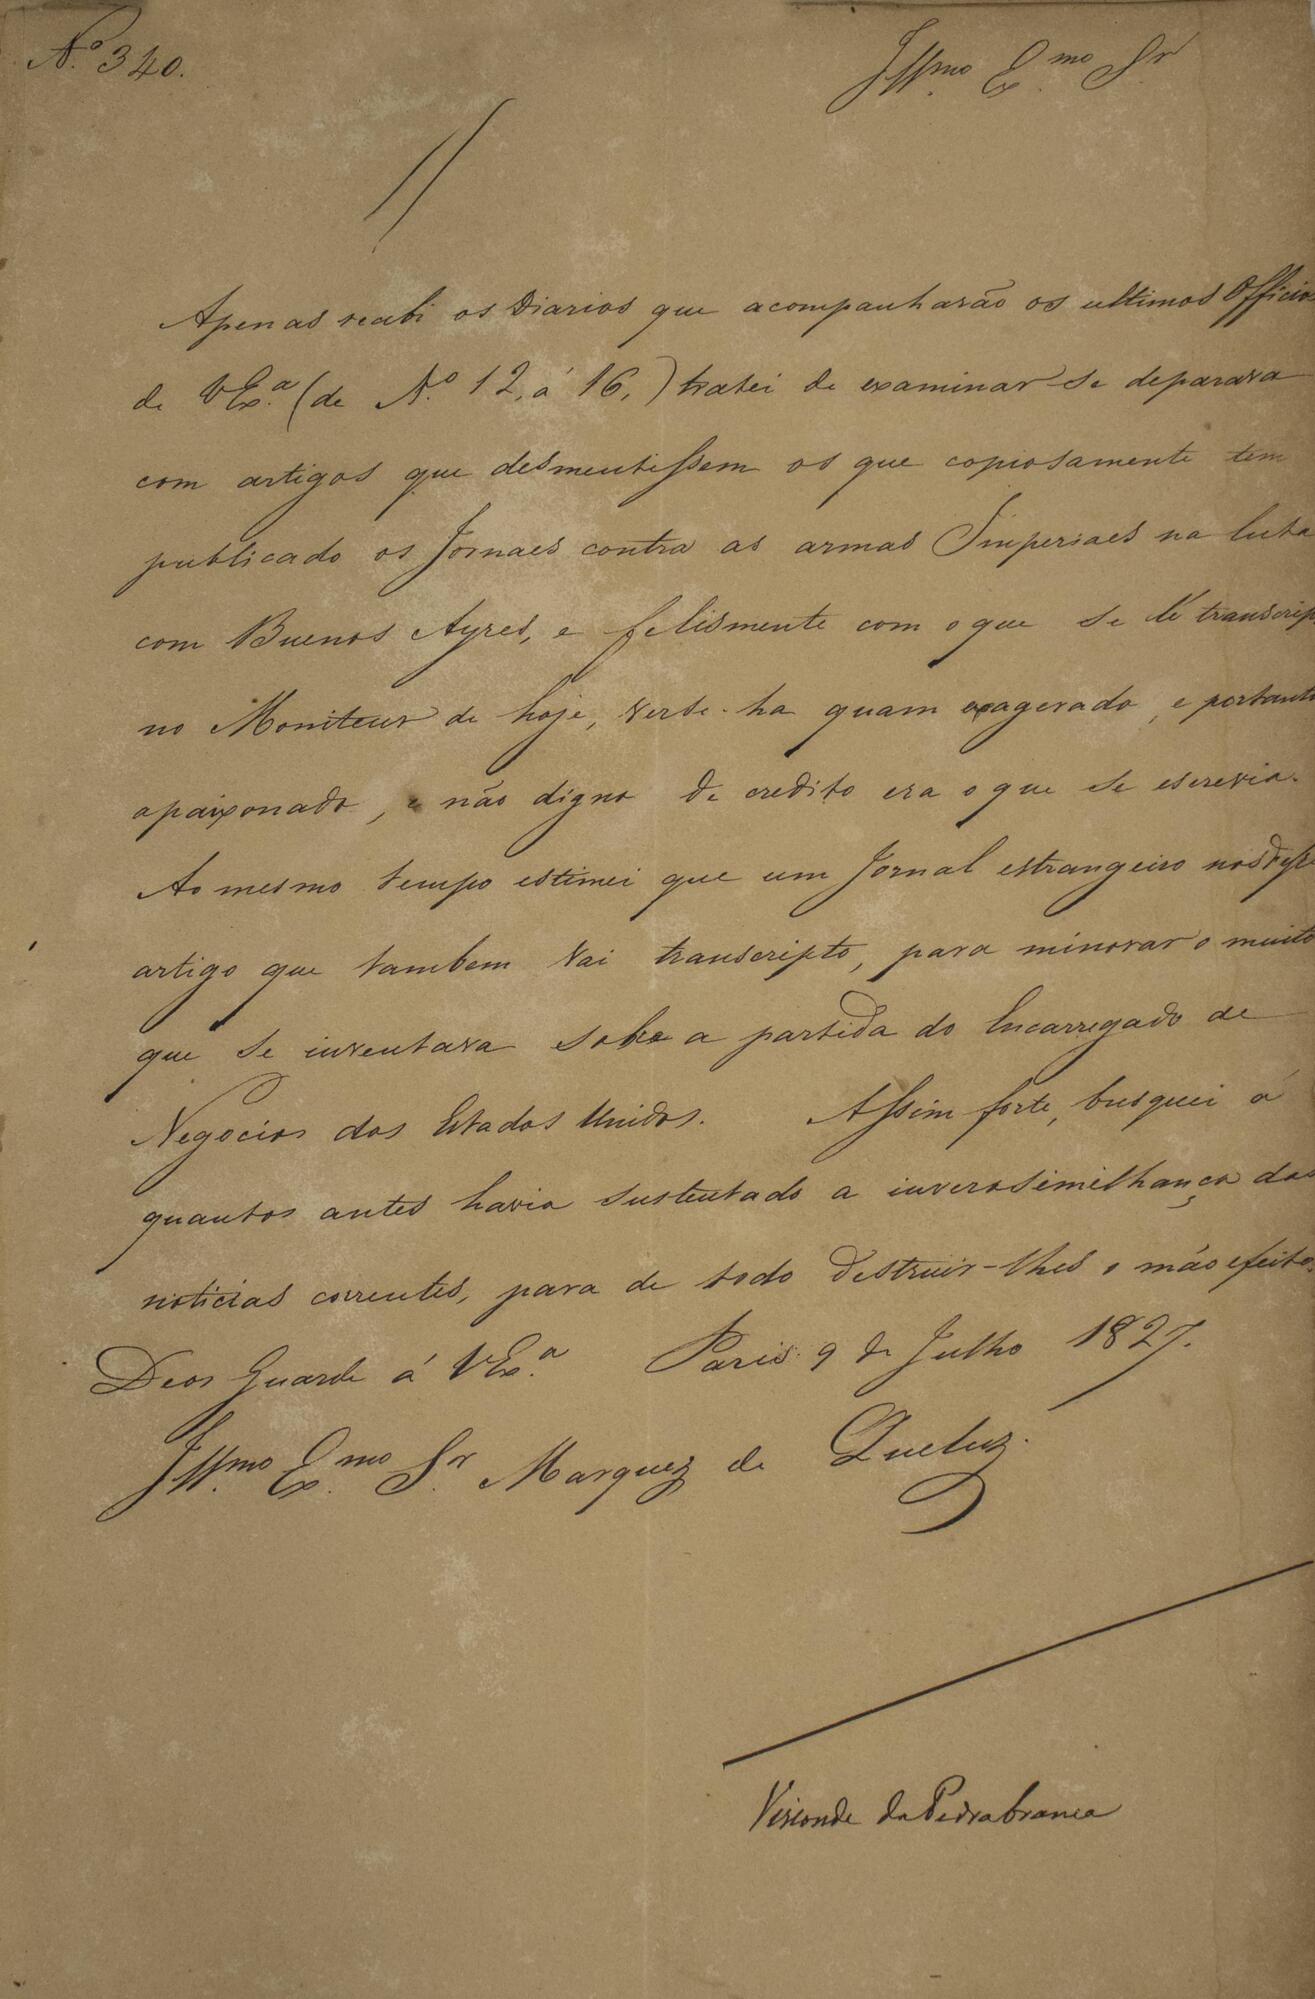 N.º 340.
Illmo. Exmo. Sr.
Apenas recebi os Diarios que acompanharão os ultimos Officios
de VEx.ª (de N.º 12, á 16,) tratei de examinar se deparava
com artigos que desmentissem os que copiosamente tem
publicado os Jornaes contra as armas Imperiaes na luta
com Buenos Ayres, e felismente com o que se lê transcrip
no Moniteur de hoje, verse-ha quam exagerado, e portanto
apaixonado, e não digno de credito era o que se escrevia.
Ao mesmo tempo estimei que um Jornal estrangeiro nos desse
artigo que tambem vai transcripto, para minorar o muito
que se inventava sobre a partida do Encarregado de
Negocios dos Estados Unidos. Assim forte, busquei á
quantos antes havia sustentado a inverosimilhança das
noticias correntes, para de todo destruir-lhes o máo efeito.
Deos Guarde á VEx.ª Paris 9 de Julho 1827.
Illmo. Exmo. Sr. Marquez de Queluz.
Visconde da Pedrabranca